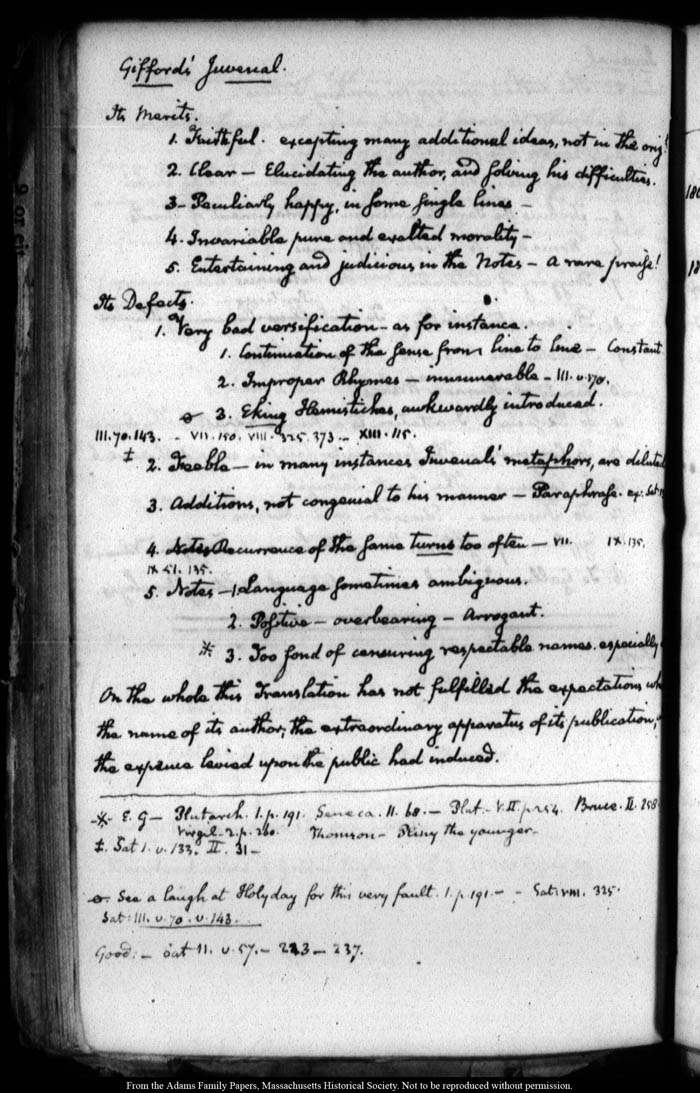 Gifford's Juvenal.
Its Merits.
1. Faithful. excepting many additional ideas, not in the orig!
2. Clear — Elucidating the author, and solving his difficulties.
3 — Peculiarly happy, in some single lines —
4. Invariable pure and exalted morality —
5. Entertaining and judicious in the Notes — a rare praise!
Its Defects.
1. Very bad versification — as for instance.
1. Continuation of the sense from line to line — Constant
2. Improper Rhymes — innumerable — III. v. 170.
3. Eking Hemistiches, awkwardly introduced.
III. 70. 143. — VII. 150. VIII. 325. 373 — XIII. 115.
‡ 2. Feeble — in many instances Juvenal's metaphors, are diluted
3. Additions, not congenial to his manner — Paraphrase. ex: Sat:
4. Notes Recurrence of the same turns too often — VII. IX. 135.
IX 51. 135.
5. Notes — 1. Language sometimes ambiguous.
2. Positive — overbearing — Arrogant.
※ 3. Too fond of censuring respectable names. especially
On the whole this Translation has not fulfilled the expectations wh
the name of its author, the extraordinary apparatus of its publication,
the expence levied upon the public had induced.
※ E. G — Plutarch. 1. p. 191. Seneca. 11. 68. — Plut — V. II p. 254. Bruce. II. 258
Virgil. 2. p. 260. Thomson — Pliny the younger —
‡. Sat 1. v. 133. II. 31 —
See a laugh at Holyday for this very fault. 1. p. 191 — — Sat: VIII. 325.
Sat: III. v. 70. v. 143.
Good: — Sat 11. v. 57. — 223 — 237.
From the Adams Family Papers, Massachusetts Historical Society. Not to be reproduced without permission.